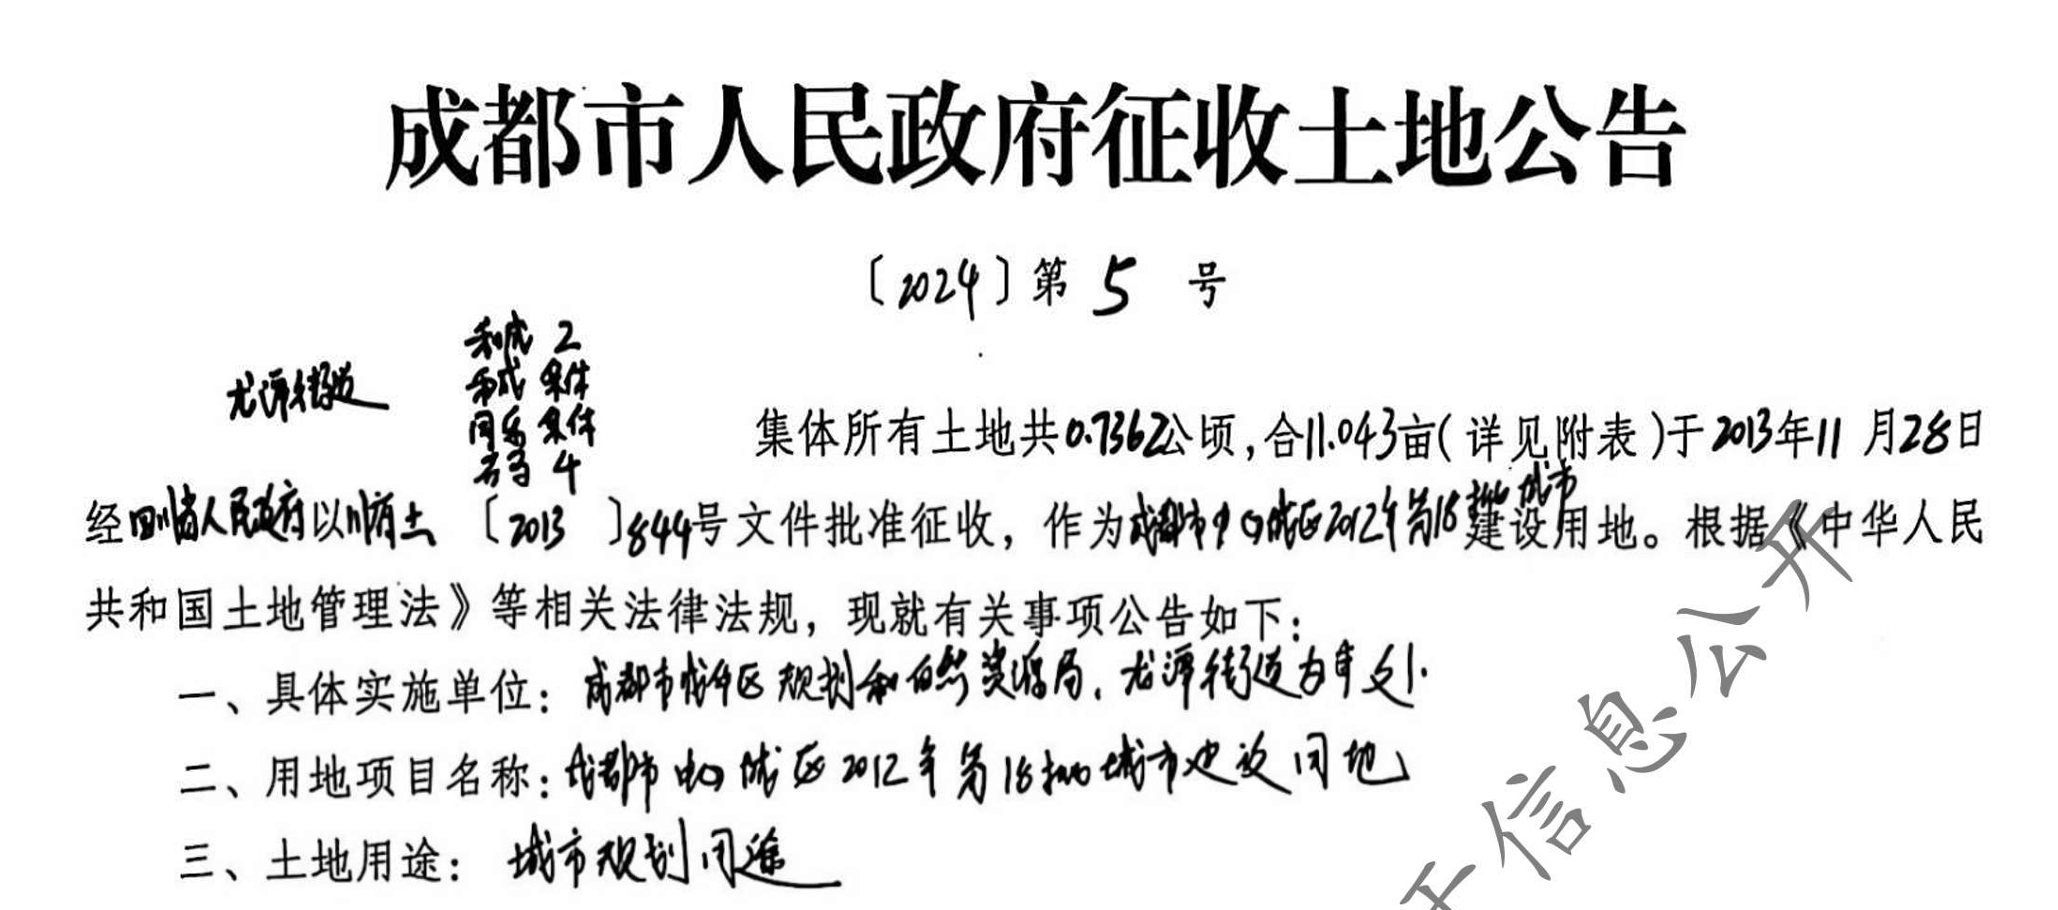 成都市人民政府征收土地公告
〔2024〕第 5 号
龙潭街道
和成 2
和成 集体
同乐 集体
石马 4
集体所有土地共0.7362公顷,合11.043亩(详见附表)于2013年11月28日
经四川省人民政府以川府土〔2013〕844号文件批准征收，作为成都市中心城区2012年第18批城市建设用地。根据《中华人民
共和国土地管理法》等相关法律法规，现就有关事项公告如下：
一、具体实施单位：成都市成华区规划和自然资源局、龙潭街道办事处.
二、用地项目名称：成都市中心城区2012年第18批城市建设用地
三、土地用途：城市规划用途
于信息公开